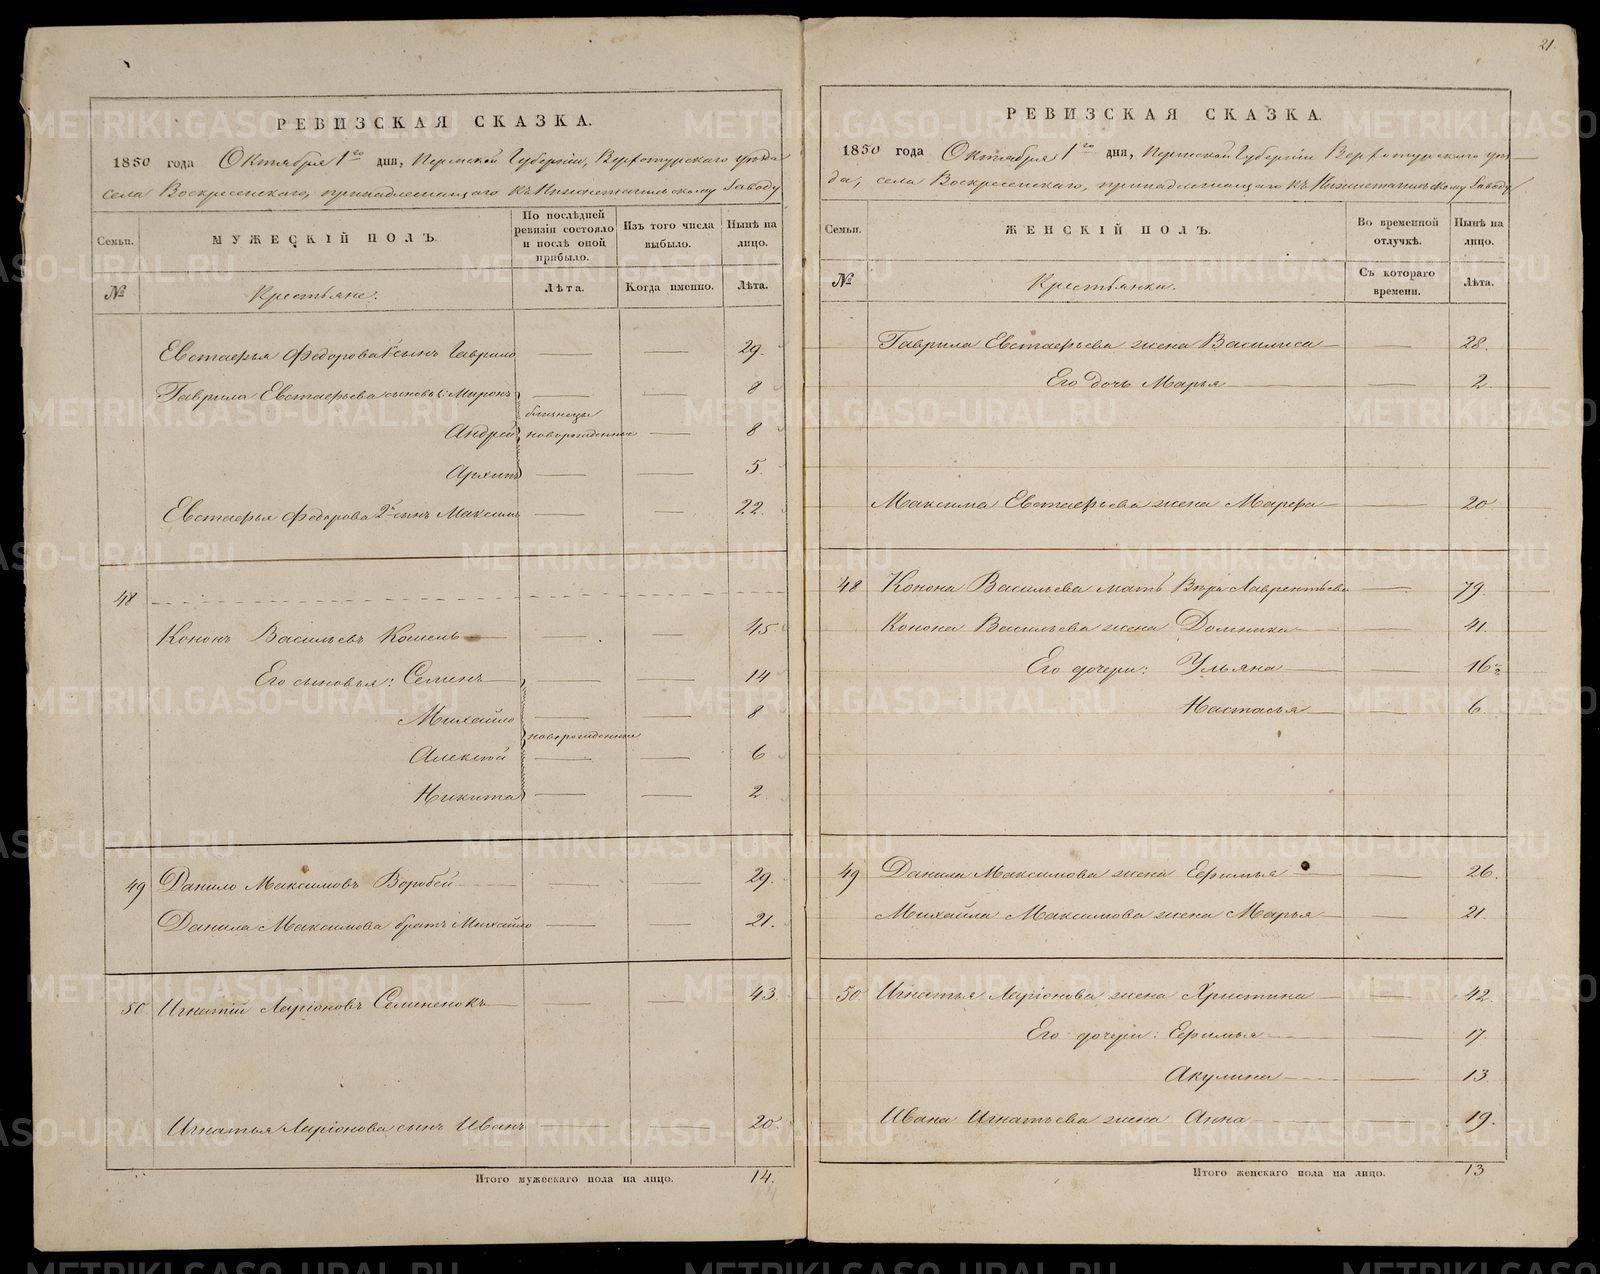 21.
РЕВИЗСКАЯ СКАЗКА.
1850 года Октября 1го дня, Пермской Губерніи, Верхотурскаго уѣзда
села Воскресенскаго, принадлежащаго къ Нижнетагильскому Заводу
Семьи. МУЖЕСКІЙ ПОЛЪ. По послѣдней ревизіи состояло и послѣ оной прибыло. Изъ того числа выбыло. Нынѣ на лицо.
№ Крестьяне. Лѣта. Когда именно. Лѣта.
Евстафья Федорова 1й сынъ Гаврило 29.
Гаврила Евстафьева сыновья: Миронъ 8
близнецы
Андрей новорожденные 8
Архипъ 5.
Евстафья Федорова 2й сынъ Максимъ 22.
48
Кононъ Васильевъ 45
Его сыновья: Семенъ 14
Михайло 8
новорожденные
Алексѣй 6
Никита 2
49 Данило Максимовъ Воробей 29.
Данила Максимова братъ Михайло 21.
50 Игнатій Ларіоновъ Семененокъ 43.
Игнатья Ларіонова сынъ Иванъ 20
Итого мужескаго пола на лицо. 14.
РЕВИЗСКАЯ СКАЗКА.
1850 года Октября 1го дня, Пермской Губерніи Верхотурскаго уѣз—
да, села Воскресенскаго, принадлежащаго къ Нижнетагильскому Заводу
Семьи. ЖЕНСКІЙ ПОЛЪ. Во временной отлучкѣ. Нынѣ на лицо.
№ Крестьянки. Съ котораго времени. Лѣта.
Гаврила Евстафьева жена Василиса 28.
Его дочь Марья 2
Максима Евстафьева жена Марфа 20
48 Конона Васильева мать Лаврентьева 79.
Конона Васильева жена Домника 41.
Его дочери: Ульяна 16
Настасья 6
49 Данила Максимова жена Ефимья 26.
Михайла Максимова жена Марья 21.
50 Игнатья Ларіонова жена Христина 42.
Его дочери: Ефимья 17.
Акулина 13
Ивана Игнатьева жена Анна 19.
Итого женскаго пола на лицо. 13
METRIKI.GASO-URAL.RU